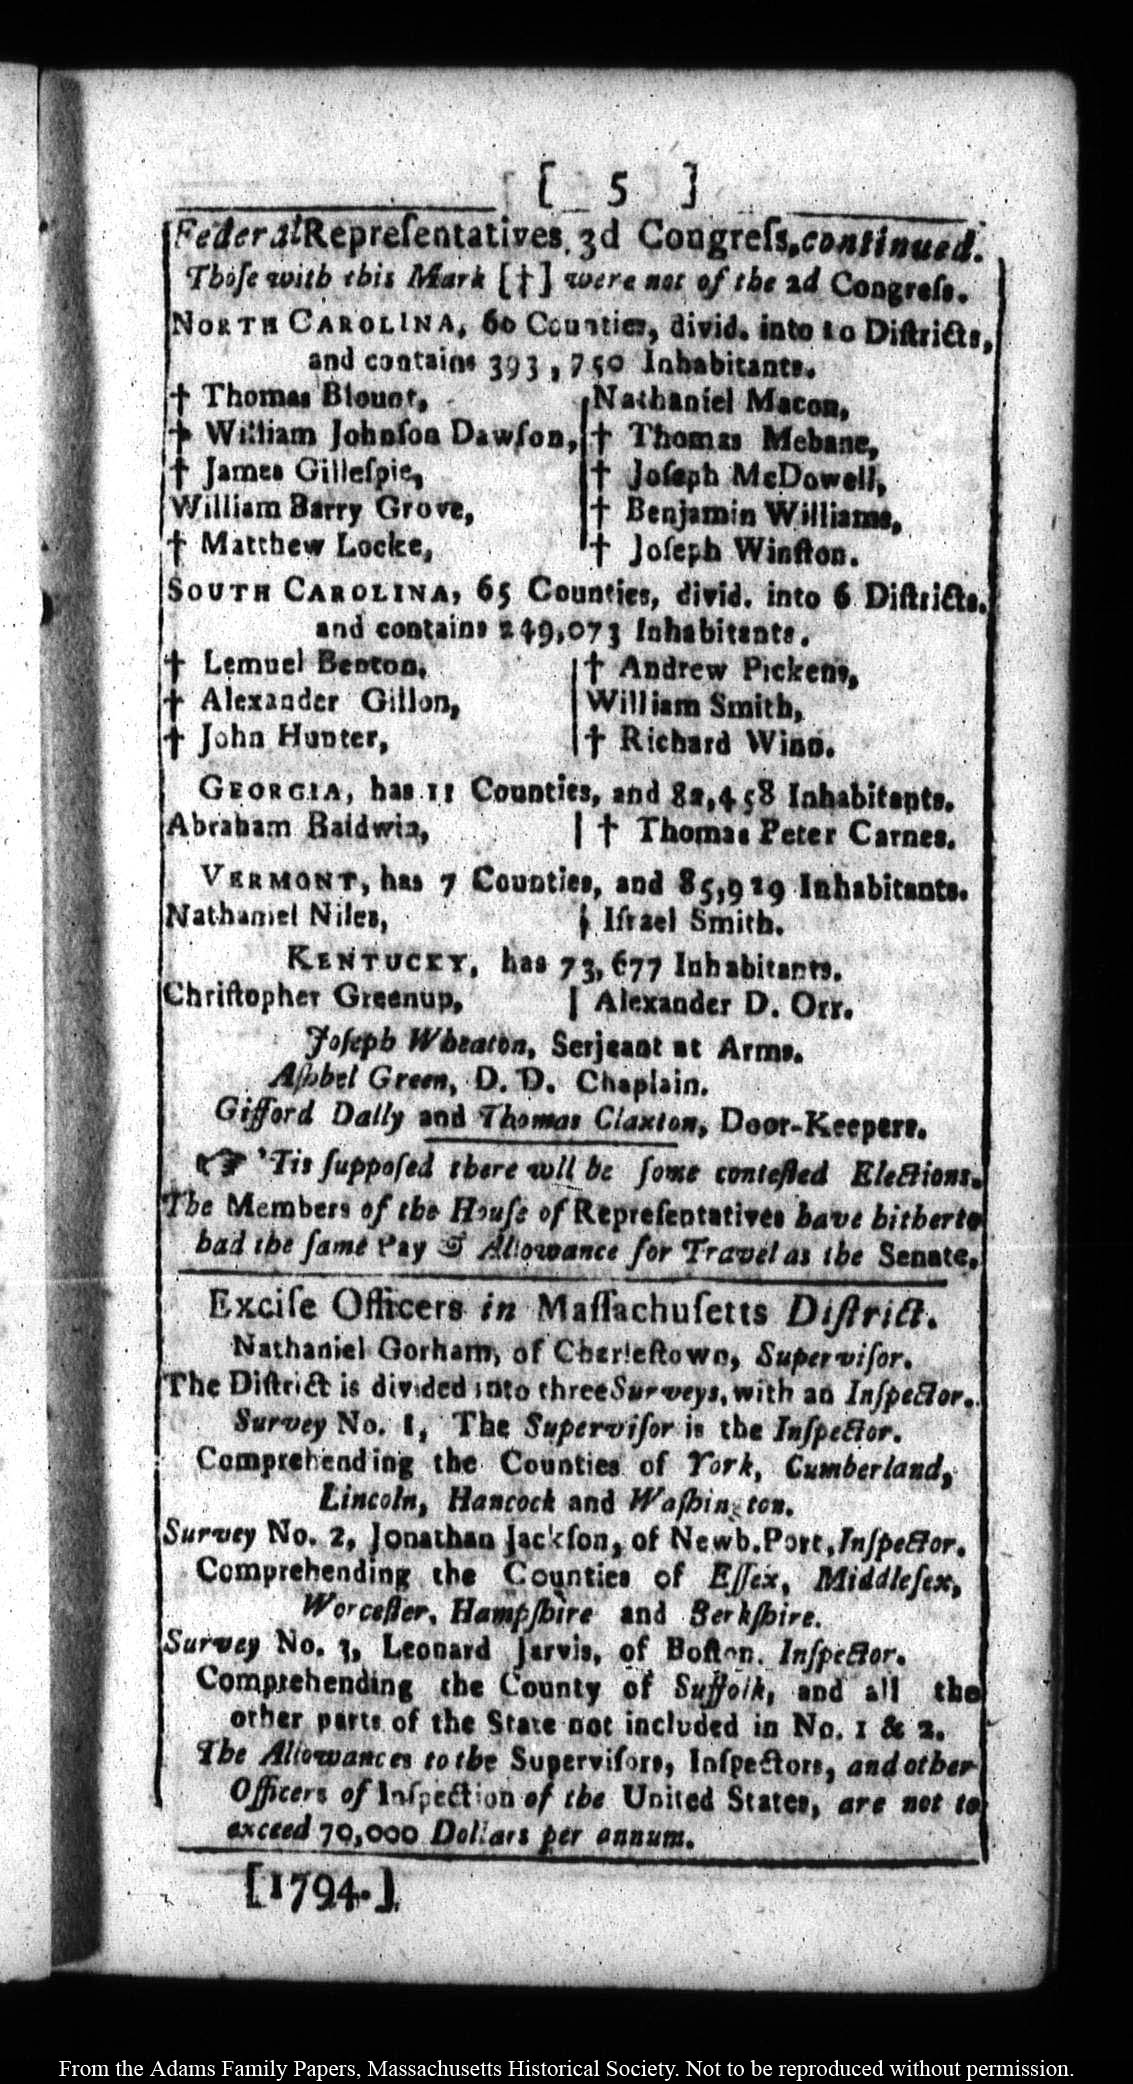 [ 5 ]
Federal Repreſentatives, 3d Congreſs, continued.
Thoſe with this Mark [†] were not of the 2d Congreſs.
NORTH CAROLINA, 60 Counties, divid. into 10 Diſtricts,
and contains 393,750 Inhabitants.
† Thomas Blount, Nathaniel Macon,
† William Johnſon Dawſon, † Thomas Mebane,
† James Gilleſpie, † Joſeph McDowell,
William Barry Grove, † Benjamin Williams,
† Matthew Locke, † Joſeph Winſton.
SOUTH CAROLINA, 65 Counties, divid. into 6 Diſtricts.
and contains 249,073 Inhabitants.
† Lemuel Benton, † Andrew Pickens,
† Alexander Gillon, William Smith,
† John Hunter, † Richard Winn.
GEORGIA, has 11 Counties, and 82,458 Inhabitants.
Abraham Baldwin, | † Thomas Peter Carnes.
VERMONT, has 7 Counties, and 85,929 Inhabitants.
Nathaniel Niles, | Iſrael Smith.
KENTUCKY, has 73,677 Inhabitants.
Chriſtopher Greenup, | Alexander D. Orr.
Joſeph Wheaton, Serjeant at Arms.
Aſhbel Green, D. D. Chaplain.
Gifford Dally and Thomas Claxton, Door-Keepers.
☞ 'Tis ſuppoſed there wll be ſome conteſted Elections.
The Members of the Houſe of Repreſentatives have hitherto
had the ſame Pay & Allowance for Travel as the Senate.
Exciſe Officers in Maſſachuſetts Diſtrict.
Nathaniel Gorham, of Charleſtown, Superviſor.
The Diſtrict is divided into three Surveys, with an Inſpector.
Survey No. 1, The Superviſor is the Inſpector.
Comprehending the Counties of York, Cumberland,
Lincoln, Hancock and Waſhington.
Survey No. 2, Jonathan Jackſon, of Newb.Port, Inſpector.
Comprehending the Counties of Eſſex, Middleſex,
Worceſter, Hampſhire and Berkſhire.
Survey No. 3, Leonard Jarvis, of Boſton. Inſpector.
Comprehending the County of Suffolk, and all the
other parts of the State not included in No. 1 & 2.
The Allowances to the Superviſors, Inſpectors, and other
Officers of Inſpection of the United States, are not to
exceed 70,000 Dollars per annum.
[1794.]
From the Adams Family Papers, Massachusetts Historical Society. Not to be reproduced without permission.